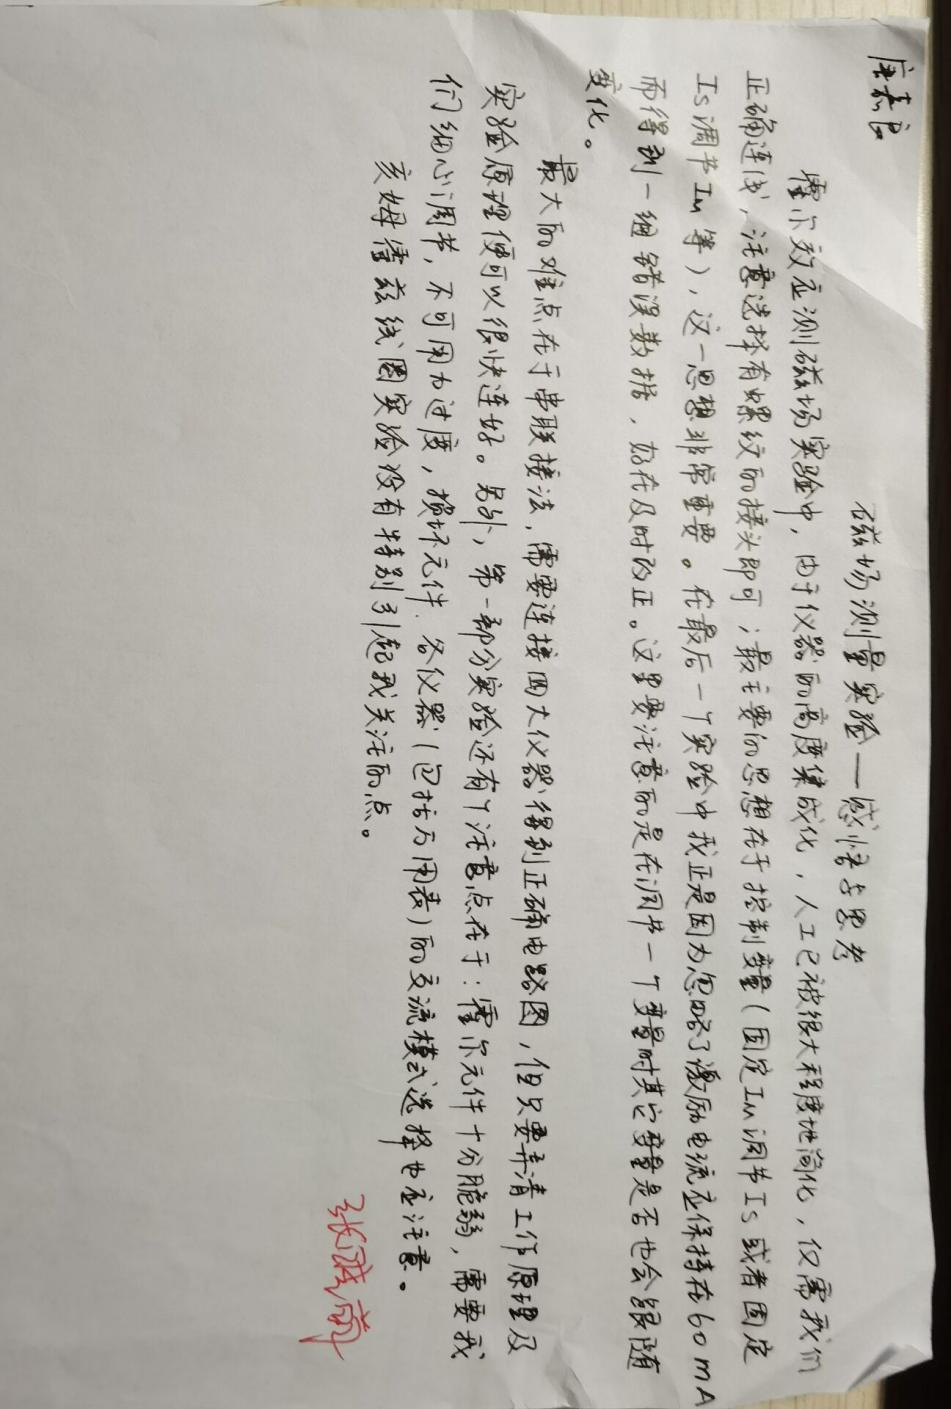 磁场测量实验——感悟与思考
霍尔效应测磁场实验中，由于仪器的高度集成化，人工已被很大程度地简化，仅需我们
正确连线，注意选择有螺纹的接头即可；最主要的思想在于控制变量（固定Im调节Is或者固定
Is调节Im等），这一思想非常重要。在最后一个实验中我正是因为忽略了激励电流应保持在60mA
而得到一组错误数据，好在及时改正。这里要注意的是在调节一个变量时其它变量是否也会跟随
变化。
最大的难点在于串联接法，需要连接四大仪器得到正确电路图，但只要弄清工作原理及
实验原理便可以很快连好。另外，第一部分实验还有个注意点在于：霍尔元件十分脆弱，需要我
们细心调节，不可用力过度，损坏元件。各仪器（包括万用表）的交流模式选择也应注意。
亥姆霍兹线圈实验没有特别引起我关注的点。